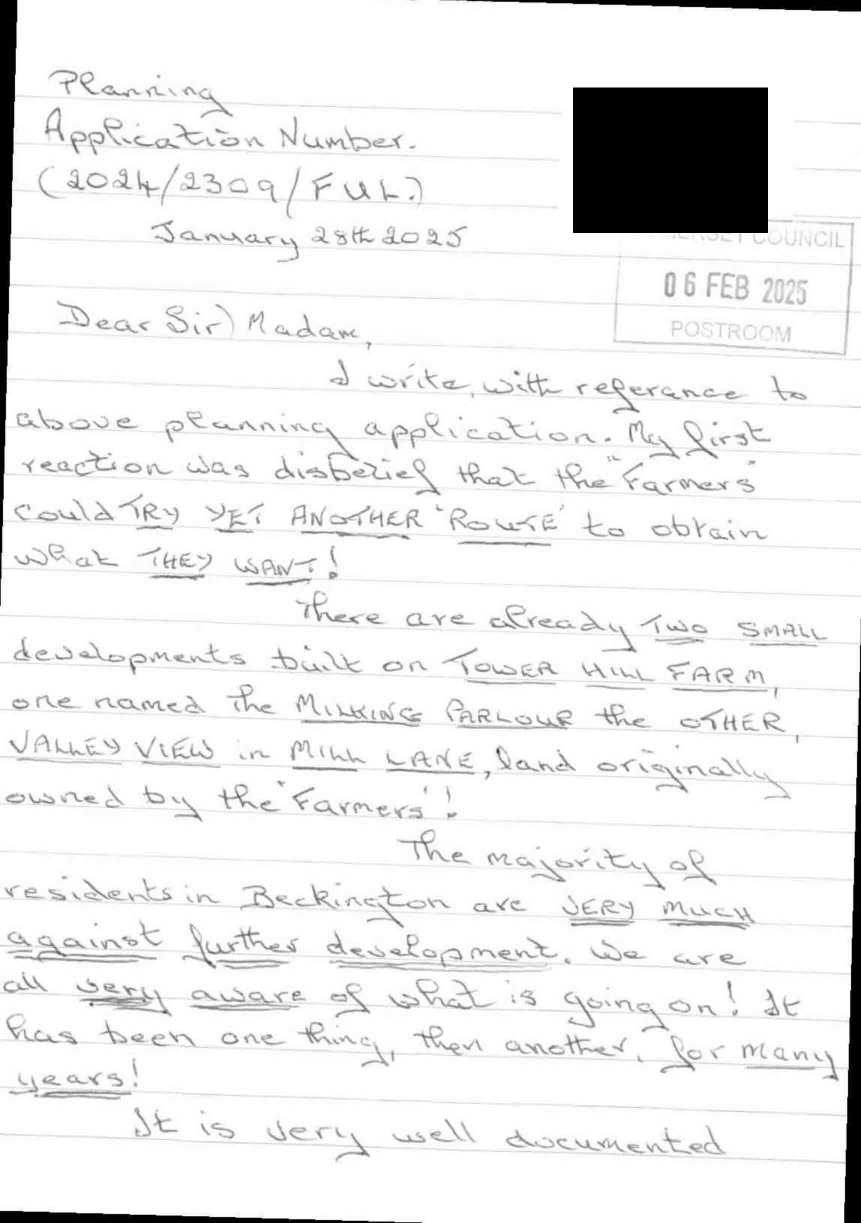 Planning
Application Number.
(2024/2309/FUL.)
January 28th 2025
COUNCIL
06 FEB 2025
POSTROOM
Dear Sir) Madam,
I write, with referance to
above planning application. My first
reaction was disbelief that the "Farmers"
could TRY YET ANOTHER 'ROUTE' to obtain
what THEY WANT!
There are already TWO SMALL
developments built on TOWER HILL FARM,
one named the MILKING PARLOUR the OTHER,
VALLEY VIEW in MILL LANE, land originally
owned by the "Farmers"!
The majority of
residents in Beckington are VERY MUCH
against further development. We are
all very aware of what is going on! It
has been one thing, then another, for many
years!
It is very well documented